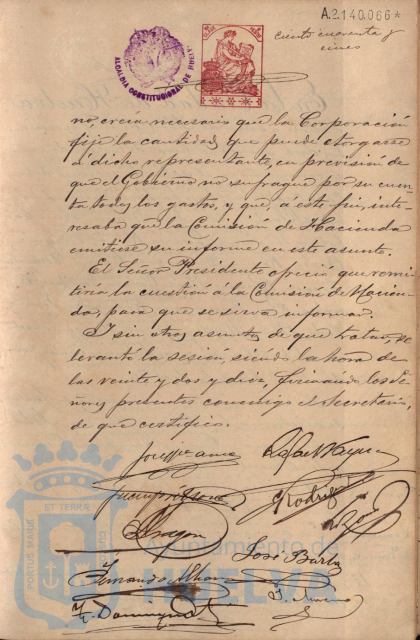 A.2.140.066*
ciento cuarenta y
cinco
ALCALDIA CONSTITUCIONAL DE HUELVA
no, creia necesario que la Corporación
fije la cantidad que puede otorgarse
á dicho representante, en previsión de
que el Gobierno no sufrague por su cuen
ta todos los gastos, y que, á este fin, inte-
resaba que la Comisión de Hacienda
emitiese su informe en este asunto.
El Señor Presidente ofreció que remi-
tiria la cuestión á la Comisión de Hacien-
da, para que se sirva informar.
Y sin otros asuntos de que tratar, se
levantó la sesión, siendo la hora de
las veinte y dos y diez, firmando los Se-
ñores presentes conmigo el Secretario,
de que certifico.
Rodriguez
Aragon
José
Fernando
Dominguez
PORTUS MARIS ET TERRAE CUSTODIA
Ayuntamiento de
HUELVA